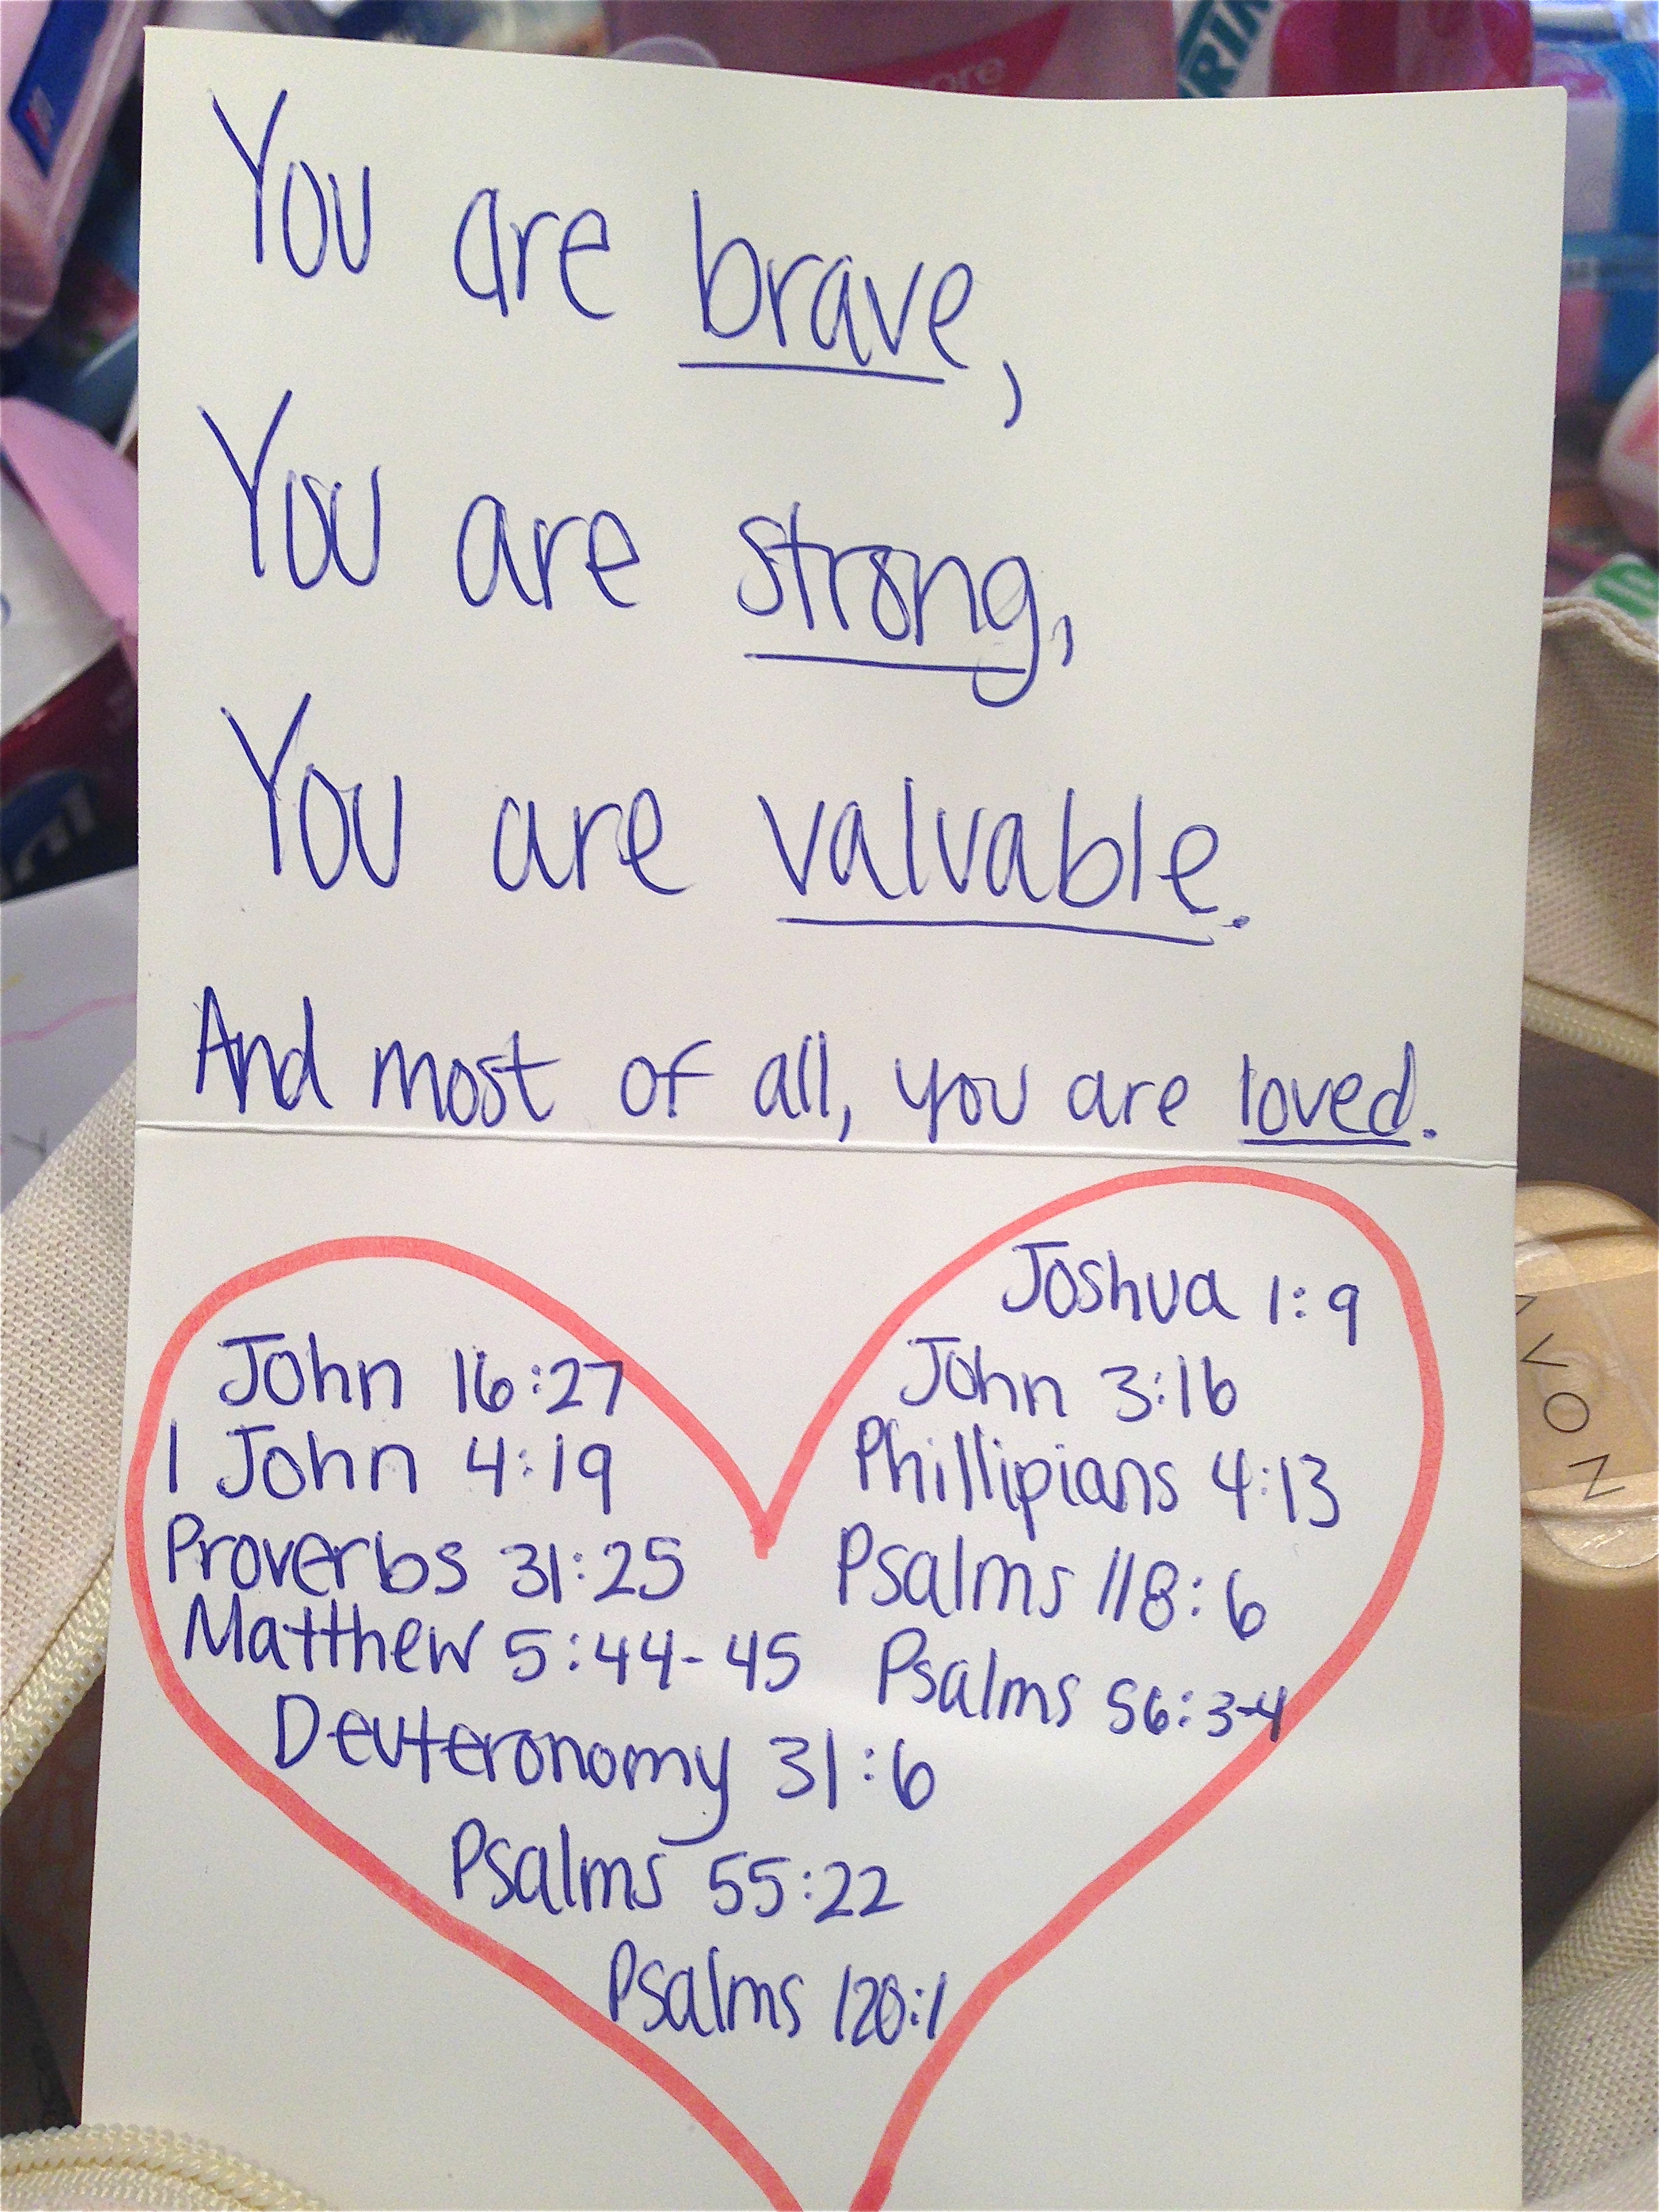 You are brave,
You are strong,
You are valuable.
And most of all, you are loved.
John 16:27
1 John 4:19
Proverbs 31:25
Matthew 5:44-45
Deuteronomy 31:6
Psalms 55:22
Psalms 120:1
Joshua 1:9
John 3:16
Phillipians 4:13
Psalms 118:6
Psalms 56:3-4
AVON